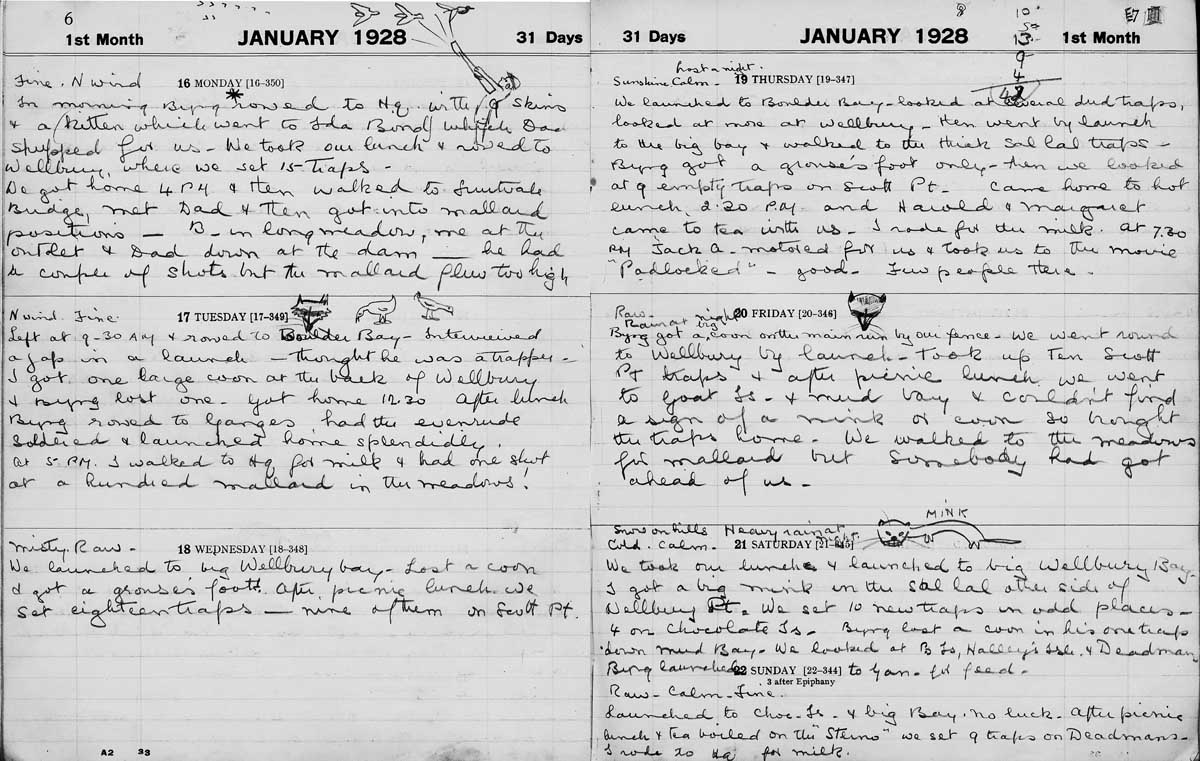 6
1st Month JANUARY 1928 31 Days
Fine. N wind 16 MONDAY [16-350]
In morning Byng rowed to Hq. with 9 skins
& a kitten which went to Ida Bond, which Dad
shipped for us - We took our lunch & rowed to
Wellbury, where we set 15 traps -
We got home 4 PM & then walked to
Bridge, met Dad & then got into mallard
positions - B - in longmeadow, me at the
outlet & Dad down at the dam - he had
a couple of shots but the mallard flew too high
N wind. Fine. 17 TUESDAY [17-349]
Left at 9-30 AM & rowed to Boulder Bay - Interviewed
a Jap in a launch - thought he was a trapper -
I got one large coon at the back of Wellbury
& Byng lost one - got home 12.30 After lunch
Byng rowed to Ganges, had the evenrude
soldered & launched home splendidly.
At 5 PM. I walked to Hq for milk & had one shot
at a hundred mallard in the meadows!
Misty. Raw - 18 WEDNESDAY [18-348]
We launched to big Wellbury bay - Lost a coon
& got a grouse's foot. After picnic lunch we
set eighteen traps - nine of them on Scott Pt.
A2 33
31 Days JANUARY 1928 1st Month
10
13
9
4
42
frost a night.
Sunshine Calm - 19 THURSDAY [19-347]
We launched to Boulder Bay - looked at several dud traps,
looked at more at Wellbury - then went by launch
to the big bay & walked to the thick sal lal traps -
Byng got a grouse's foot only - then we looked
at 9 empty traps on Scott Pt. Came home to hot
lunch 2:30 PM and Harold & Margaret
came to tea with us - I rode for the milk. At 7.30
PM Jack A - motored for us & took us to the movie
"Padlocked" - good - Few people there -
Raw - 20 FRIDAY [20-346]
Rain at night
Byng got a big coon on the main run by our fence - We went round
to Wellbury by launch - took up ten Scott
Pt traps & after picnic lunch we went
to Goat Is - & mud bay & couldn't find
a sign of a mink or coon so brought
the traps home - We walked to the meadows
for mallard but somebody had got
ahead of us -
MINK
Snow on hills Heavy rain at night
Cold. Calm - 21 SATURDAY [21-345]
We took our lunch & launched to big Wellbury Bay
I got a big mink in the sal lal other side of
Wellbury Pt. We set 10 new traps in odd places -
4 on Chocolate Is - Byng lost a coon in his one traps
down mud Bay - We looked at B Is, Halley's Isle. & Deadman
Byng launched 22 SUNDAY [22-344] to Gan - for feed -
3 after Epiphany
Raw - Calm - Fine.
Launched to Choc - Is - & big Bay. no luck - After picnic
lunch & tea boiled on the "Sterno" we set 9 traps on Deadmans -
I rode to Hq for milk.